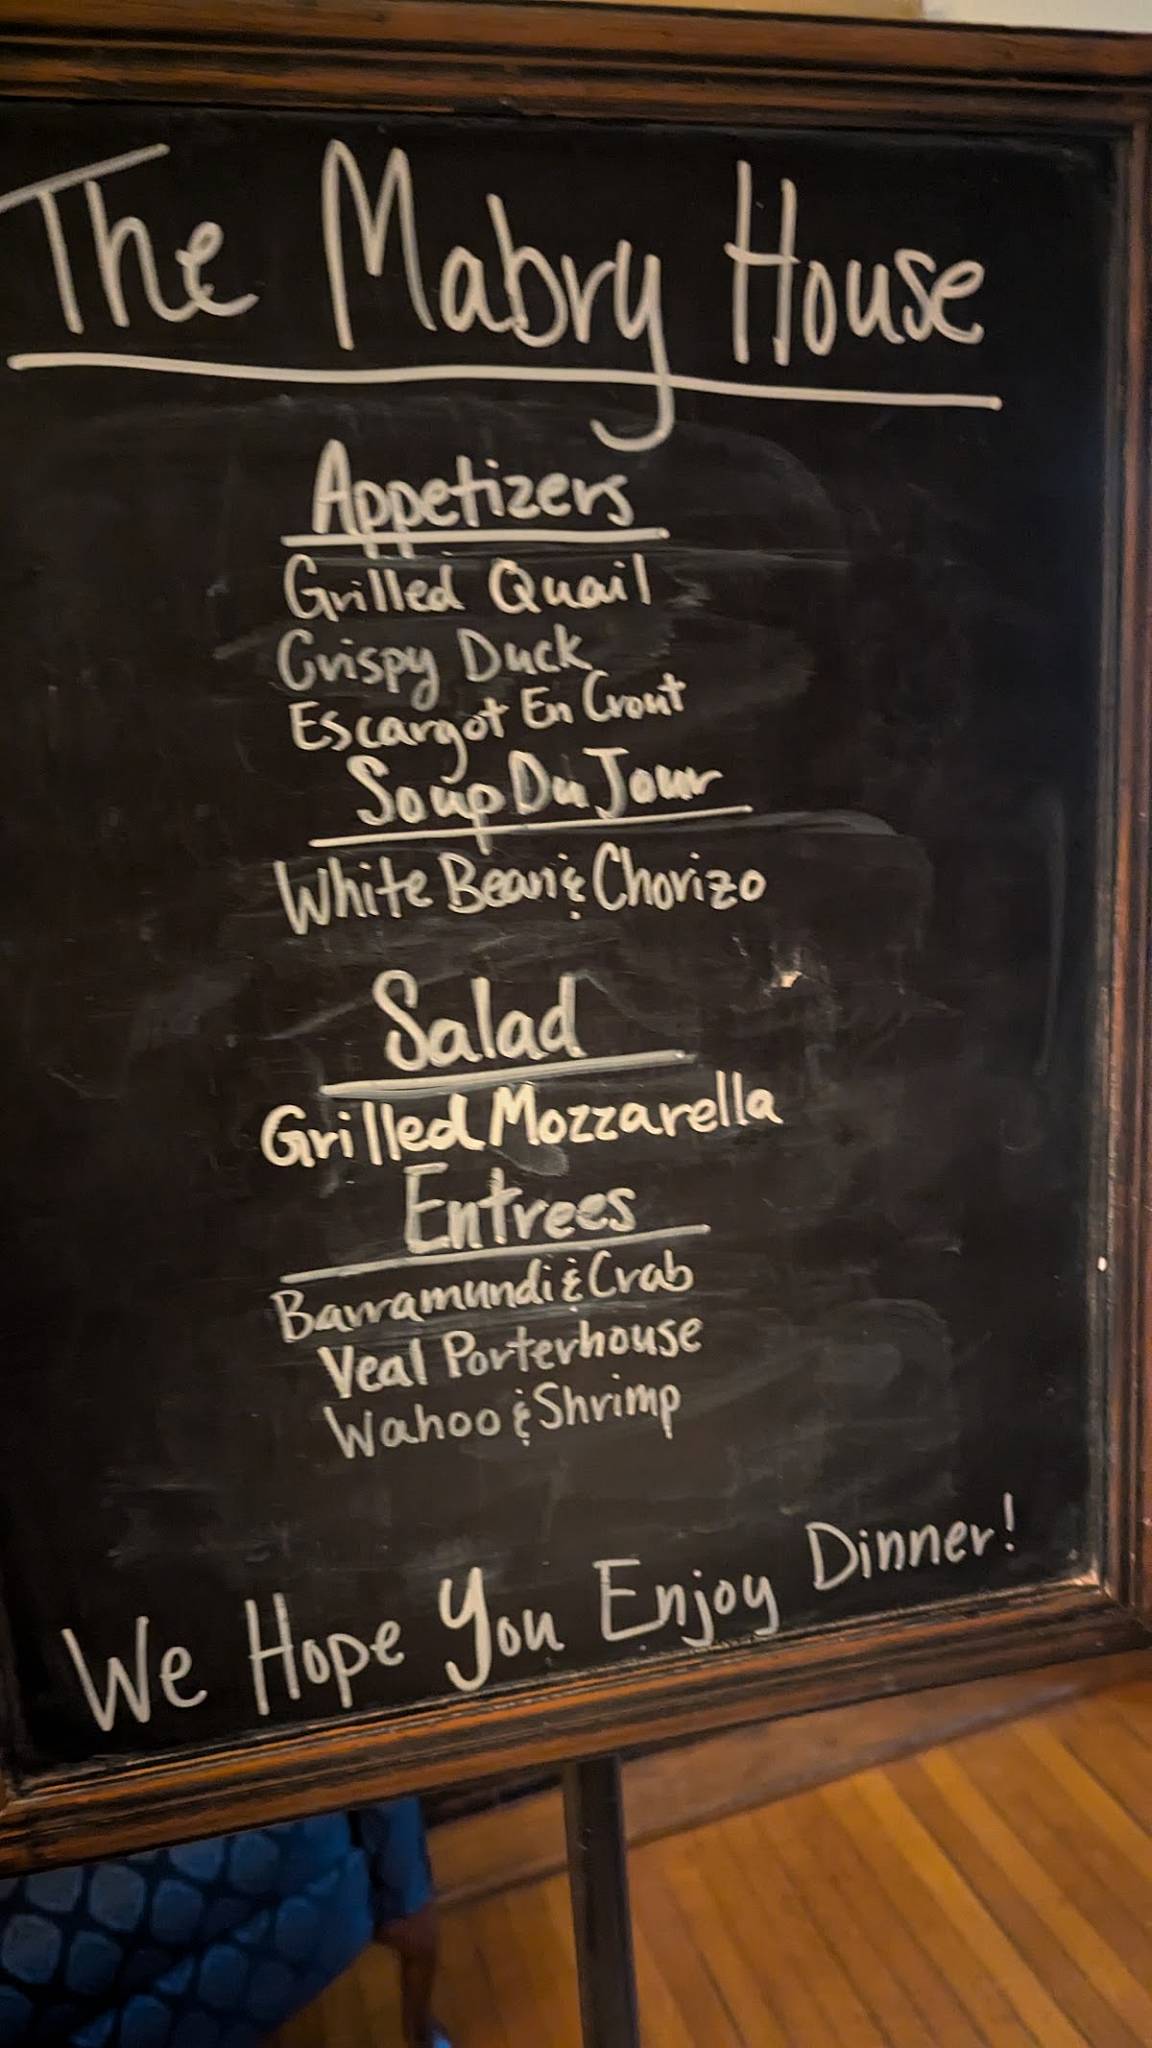 The Mabry House
Appetizers
Grilled Quail
Crispy Duck
Escargot En Crout
Soup Du Jour
White Bean & Chorizo
Salad
Grilled Mozzarella
Entrees
Barramundi & Crab
Veal Porterhouse
Wahoo & Shrimp
We Hope You Enjoy Dinner!